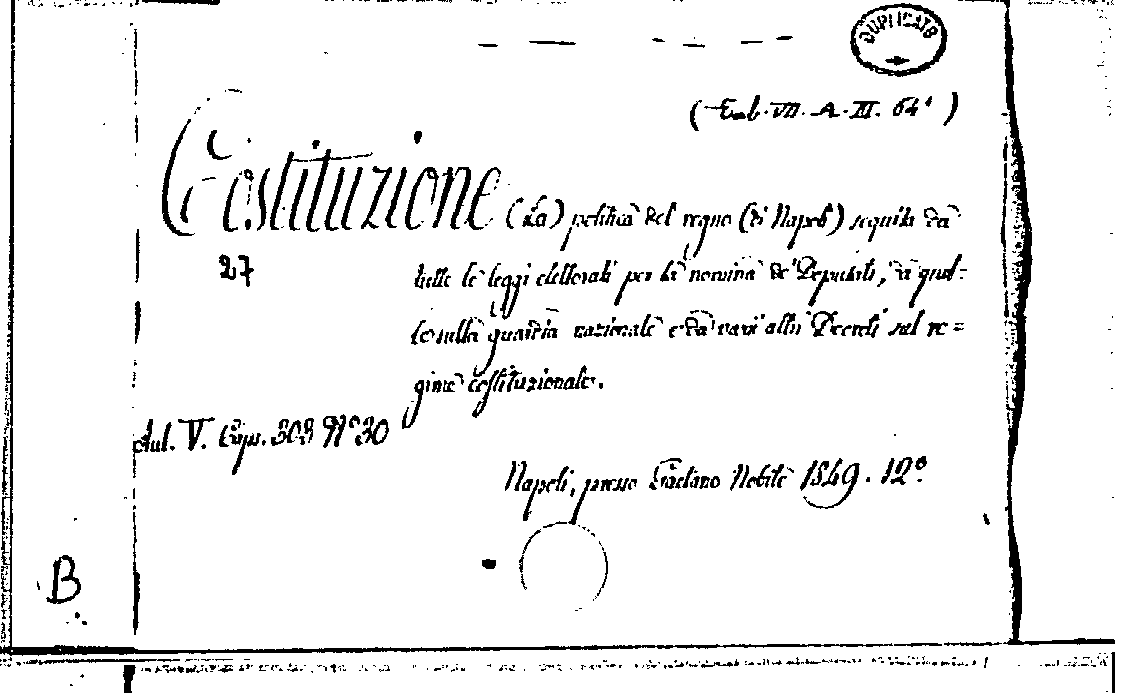 DUPLICATO
(Tab. VII. A. III. 64¹)
Costituzione (La) politica del regno (di Napoli) seguita da
27
tutte le leggi elettorali per la nomina de' Deputati, da quel=
le sulla guardia nazionale e da vari altri Decreti sul re=
gime costituzionale.
Aul. V. Caps. 303 N° 30
Napoli, presso Gaetano Nobile 1849. 12°
B